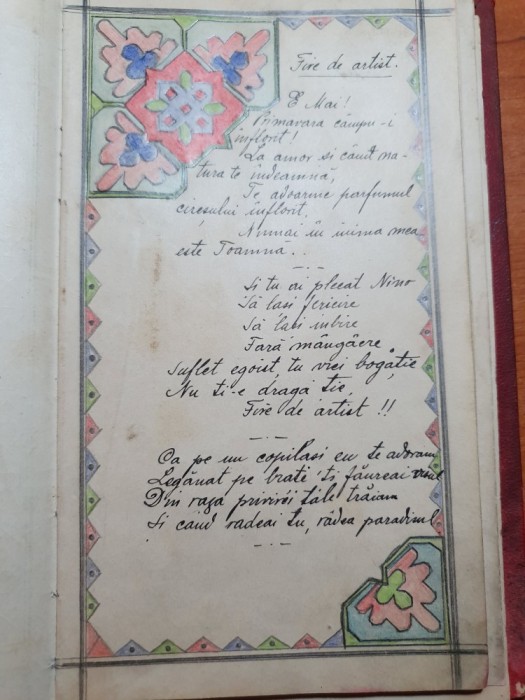 Fire de artist.
E Mai!
Primavara câmpu-i
înflorit!
La amor si cânt na-
tura te îndeamnă,
Te adoarme parfumul
cireșului înflorit.
Numai în inima mea
este Toamnă..
Si tu ai plecat Nino
Să lasi fericire
Să lasi iubire
Fară mângâere
Suflet egoist, tu vrei bogăție
Nu ti-e dragă tie,
Fire de artist!!
Ca pe un copilasi eu te adoram
Legănat pe brate ti făureai visul
Din raza privirei tale trăiam
Si când radeai tu, rădea paradisul